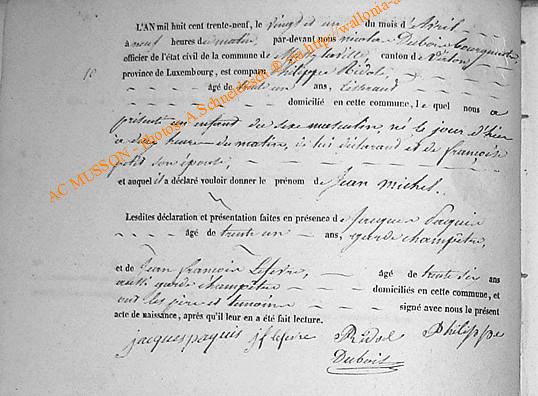 L'AN mil huit cent trente-neuf, le vingt et un du mois d'Avril
à neuf heures du matin, par-devant nous nicolas Dubois bourgmestre
officier de l'état civil de la commune de Mussy la ville canton de Virton,
10
province de Luxembourg, est comparu Philippe Ridol,
âgé de trente un ans, tisserand
domicilié en cette commune, lequel nous a
présenté un enfant du sexe masculin, né le jour d'hier
à deux heures du matin, de lui déclarant et de françoise
son épouse,
et auquel il a déclaré vouloir donner le prénom de Jean michel.
Lesdites déclaration et présentation faites en présence de Jacques Paquis
âgé de trente un ans, garde champêtre,
et de Jean françois Lefevre, âgé de trente six ans
aussi garde champêtre domiciliés en cette commune, et
ont les père et témoins signé avec nous le présent
acte de naissance, après qu'il leur en a été fait lecture.
jacques paquis jf lefevre Ridol Philippe
Dubois
AC MUSSON - Photos A.Schneidesch © Ge http://wallonia-a